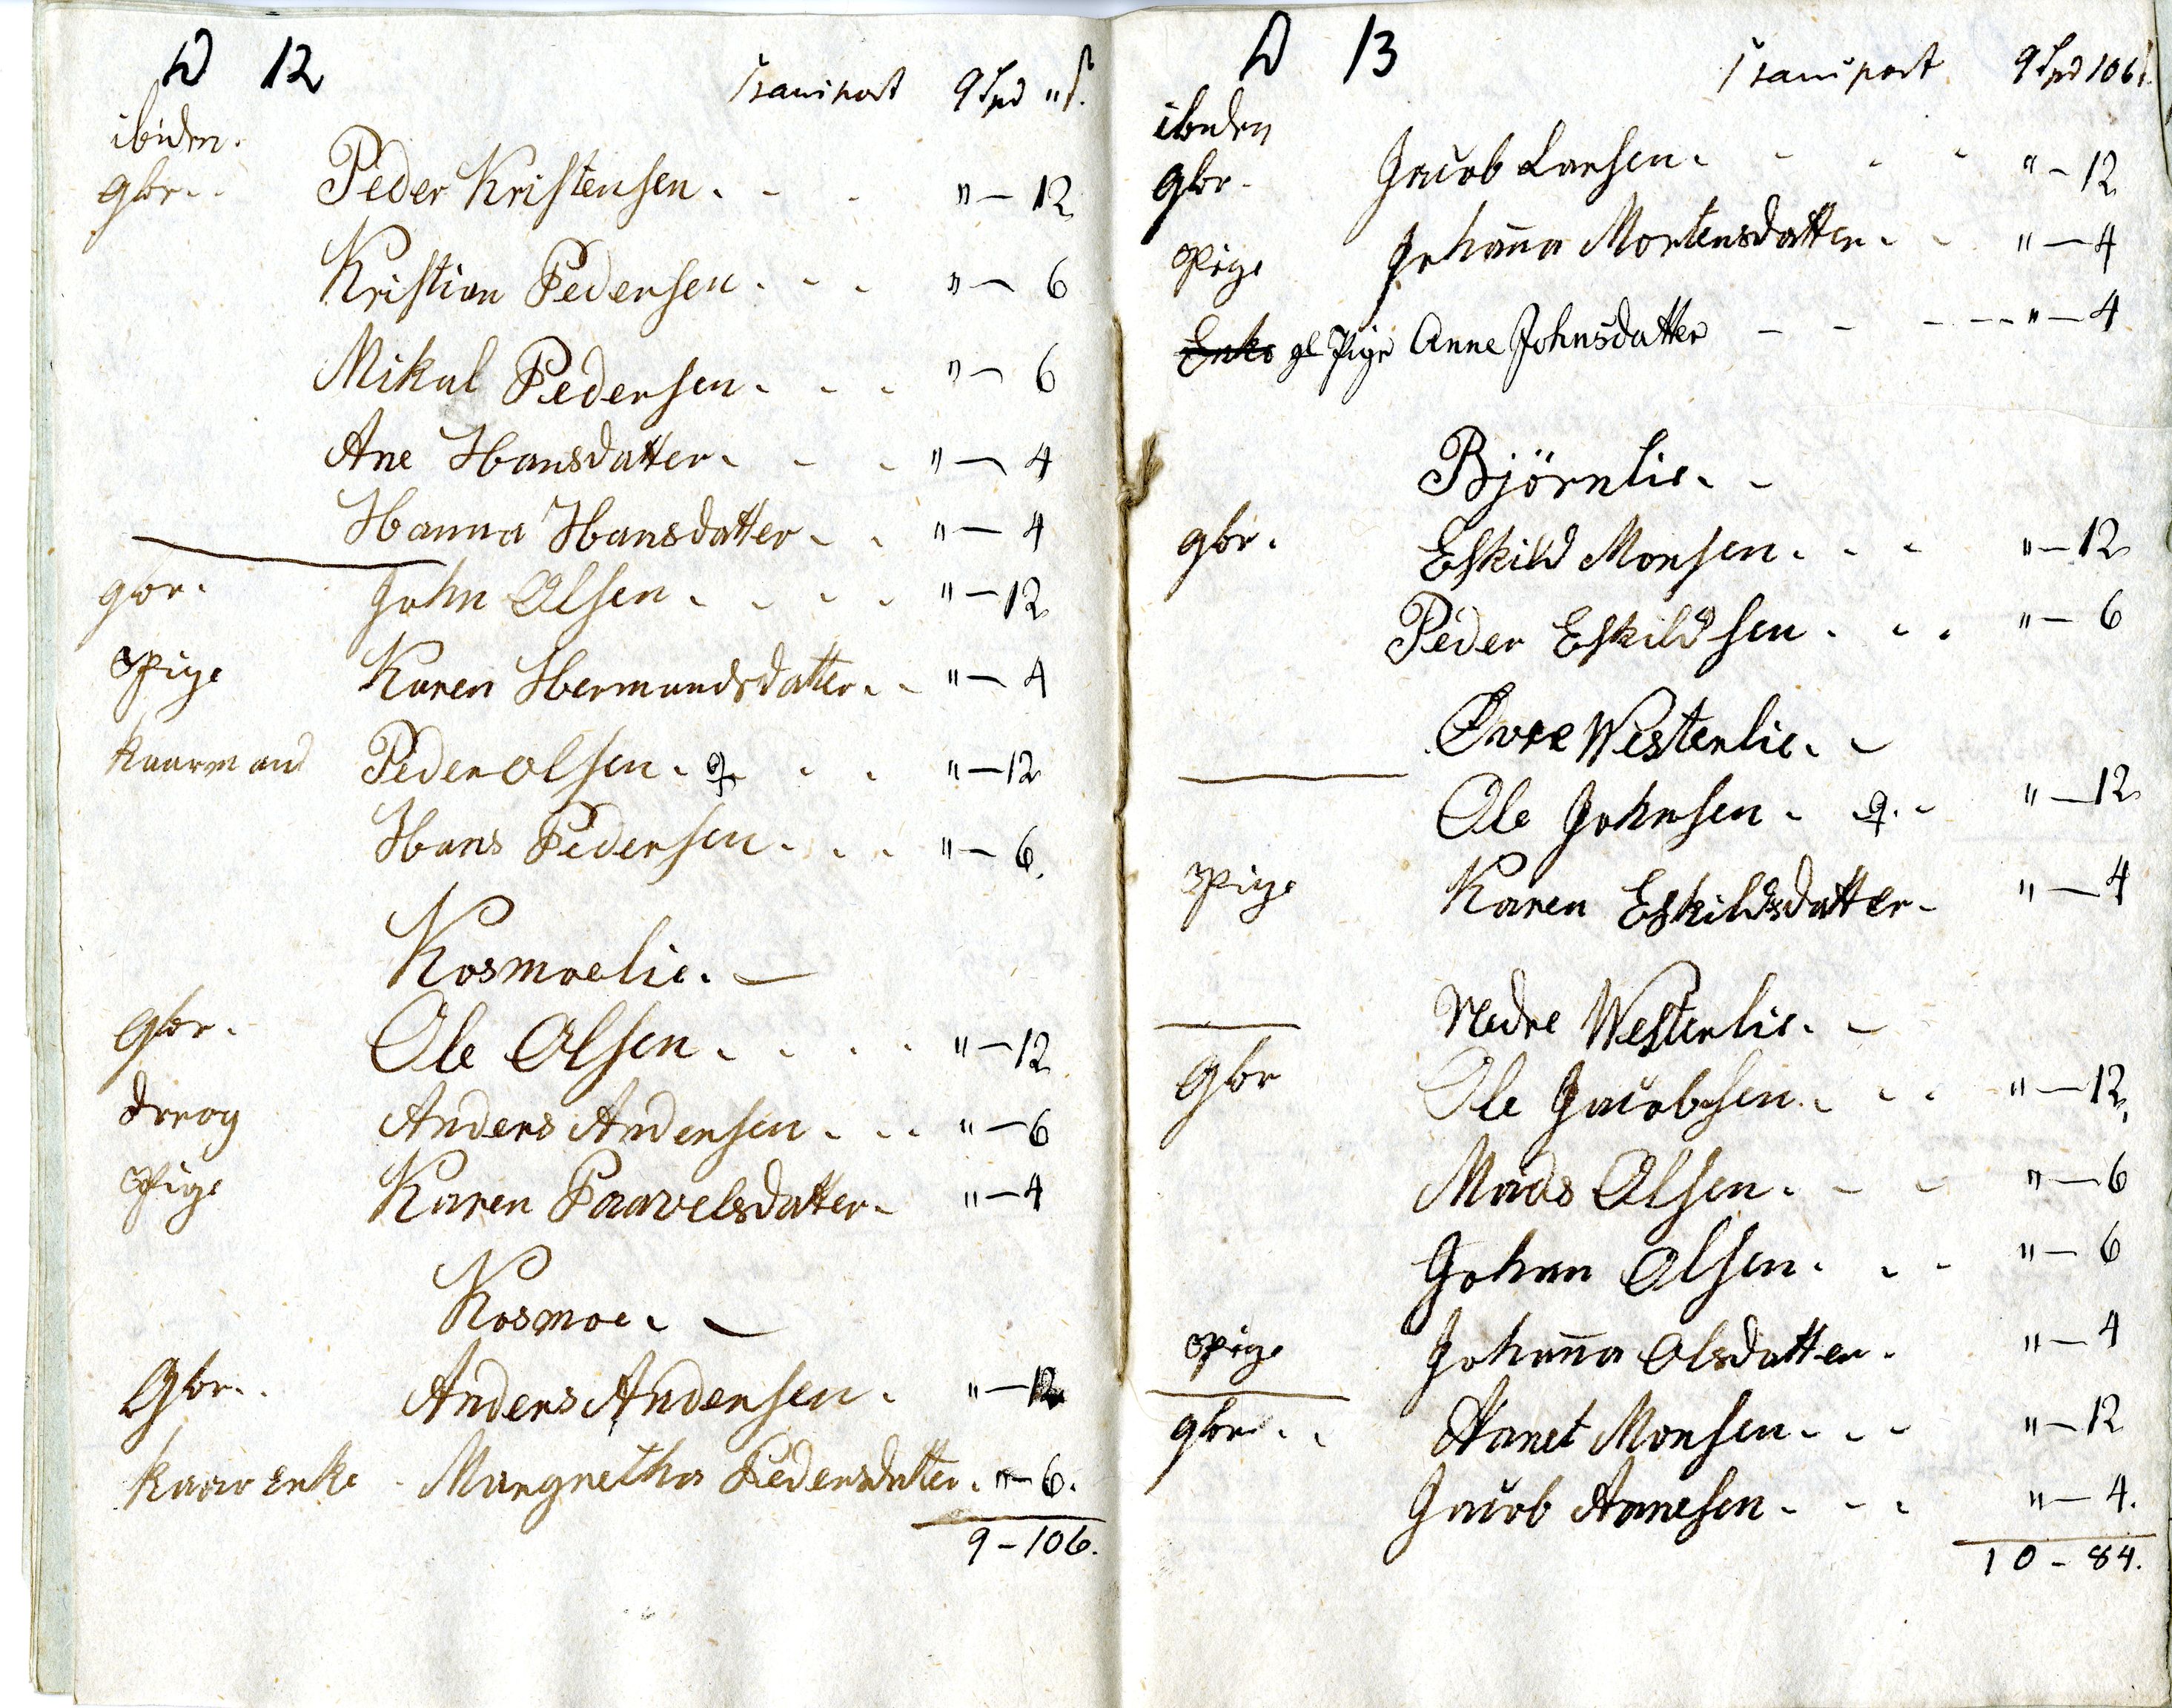 D 12
Transport 9 Spd " s.
ibiden.
gbr. Peder Kristensen. - - " - 12
Kristian Pedersen. - - " - 6
Mikal Pedersen. - - " - 6
Ane Hansdatter. - - " - 4
Hanna Hansdatter. - " - 4
gbr. John Olsen. - - - " - 12
Pige Karen Hermundsdatter. - " - 4
Kaarmand Peder Olsen. ♀. - - " - 12
Hans Pedersen. - - " - 6.
Kosmoelie. -
Gbr. Ole Olsen. - - - " - 12
dreog Anders Andersen. - - " - 6
Pige Karen Paavelsdatter - " - 4
Kosmoe. -
Gbr. Anders Andersen. " - 12
Kaar Enke - Margretha Pedersdatter. " - 6.
9 - 106.
D 13
Transport 9 Spd 106 s.
ibiden
Gbr. Jacob Larsen. - - - " - 12
Pige Johan̄a Mortensdatter. - " - 4
Enke gl Pige Anne Johnsdatter - - - - " - 4
Björnlie. -
gbr. Eskild Monsen. - - " - 12
Peder Eskildsen. - - " - 6
Övre Westerlie. -
Ole Johnsen. - ♀. - " - 12
Pige Karen Eskildsdatter - " - 4
Nedre Westerlie. -
Gbr Ole Jacobsen. - - " - 12.
Mads Olsen. - - " - 6
Johan Olsen. - - " - 6
Pige Johan̄a Olsdatter. " - 4
gbr. . Hanet Monsen. - - " - 12
Jacob Annesen. - - " - 4.
10 - 84.